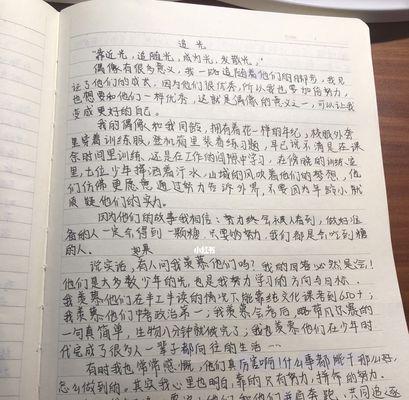 追光
“靠近光,追随光,成为光,发散光。”
偶像有很多意义,我一路追随着他们的脚步,我见
证了他们的成长,因为他们很优秀,所以我也要加倍努力,
也想要和他们一样优秀,这就是偶像的意义之一,可以让我
变成更好的自己。
我的偶像和我同龄,拥有着花一样的年纪,校服外套
里穿着训练服,登机箱里装着练习题,早已说不清是在课
余时间里训练,还是在工作的间隙中学习,在傍晚的训练道
里,七位少年挥洒着汗水,山城的风吹着他们的梦想,他
们仿佛更愿意通过努力告诉外界,不要因为年龄小就
质疑他们的实力。
因为他们的故事我相信:努力终会被人看到,做好准
备的人一定会得到一颗糖,只要够努力,我们都是会吃到糖
的人。
小红书
迦果
说实话,有人问我羡慕他们吗?我的回答必然是会!
他们是大多数少年的光,也是我努力学习的方向与目标.
我羡慕他们在半工半读的情况下能靠纯文化课考到600+;
我羡慕他们中考政治第一;我羡慕会考后,略带凡尔赛的
一句真简单,生物八分钟就做完了;我也羡慕他们在少年时
代完成了很多人一辈子都向往的生活……
有时我也常常感慨,他们真厉害啊!什么事都
怎么做到的,其实我心里也明白,靠的只有努力,拼搏的努力.